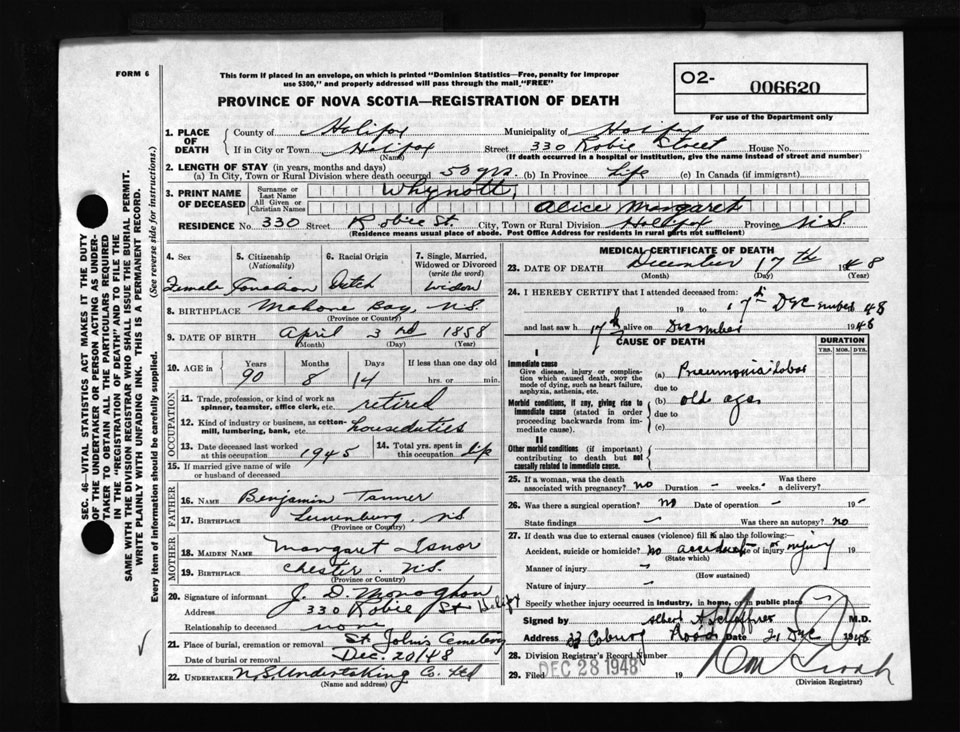 FORM 6
This form if placed in an envelope, on which is printed "Dominion Statistics—Free, penalty for improper
use $300," and properly addressed will pass through the mail "FREE"
O2- 006620
PROVINCE OF NOVA SCOTIA—REGISTRATION OF DEATH
For use of the Department only
1. PLACE OF DEATH
County of Halifax Municipality of Halifax
If in City or Town Halifax Street 330 Robie Street House No.
(Name) (If death occurred in a hospital or institution, give the name instead of street and number)
2. LENGTH OF STAY (in years, months and days)
(a) In City, Town or Rural Division where death occurred 50 yrs. (b) In Province Life (c) In Canada (if immigrant)
3. PRINT NAME OF DECEASED
Surname or Last Name Whynott,
All Given or Christian Names Alice Margaret
RESIDENCE No 330 Street Robie St. City, Town or Rural Division Halifax Province N.S.
(Residence means usual place of abode. Post Office Address for residents in rural parts not sufficient)
4. Sex 5. Citizenship (Nationality) 6. Racial Origin 7. Single, Married, Widowed or Divorced (write the word)
Female Canadian Dutch Widow
8. BIRTHPLACE Mahone Bay, N.S.
(Province or Country)
9. DATE OF BIRTH April 3rd 1858
(Month) (Day) (Year)
10. AGE in Years Months Days If less than one day old
90 8 14 hrs. or min.
OCCUPATION
11. Trade, profession, or kind of work as spinner, teamster, office clerk, etc. retired
12. Kind of industry or business, as cotten-mill, lumbering, bank, etc. houseduties
13. Date deceased last worked at this occupation 1945 14. Total yrs. spent in this occupation life
15. If married give name of wife or husband of deceased
FATHER
16. NAME Benjamin Tanner
17. BIRTHPLACE Lunenburg, N.S.
(Province or Country)
MOTHER
18. MAIDEN NAME Margaret Isnor
19. BIRTHPLACE Chester N.S.
(Province or Country)
20. Signature of informant J. D. Monaghan
Address 330 Robie St Halifx
Relationship to deceased none
21. Place of burial, cremation or removal St. John's Cemetery
Date of burial or removal Dec. 20/48
22. UNDERTAKER N.S. Undertaking Co. Ltd
(Name and address)
MEDICAL CERTIFICATE OF DEATH
23. DATE OF DEATH December 17th 1948
(Month) (Day) (Year)
24. I HEREBY CERTIFY that I attended deceased from:
19 to 17th December 48
and last saw h alive on 17th December 1948
CAUSE OF DEATH
DURATION
YRS. MOS. DYS.
I
Immediate cause
Give disease, injury or complication which caused death, not the mode of dying, such as heart failure, asphyxia, asthenia, etc.
(a) Pneumonia Lobar
due to
Morbid conditions, if any, giving rise to immediate cause (stated in order proceeding backwards from immediate cause).
(b) old age
due to
(c)
II
Other morbid conditions (if important) contributing to death but not causally related to immediate cause.
25. If a woman, was the death associated with pregnancy? no Duration - weeks. Was there a delivery? -
26. Was there a surgical operation? no Date of operation - 19 -
State findings - Was there an autopsy? no
27. If death was due to external causes (violence) fill in also the following:—
Accident, suicide or homicide? no accident or injury Date of injury 19
(State which)
Manner of injury -
(How sustained)
Nature of injury -
Specify whether injury occurred in industry, in home, or in public place -
Signed by Albert M.D.
Address 33 Coburg Road Date 21 Dec 1948
28. Division Registrar's Record Number
29. Filed DEC 28 1948 19
(Division Registrar)
SEC. 46—VITAL STATISTICS ACT MAKES IT THE DUTY
OF THE UNDERTAKER OR PERSON ACTING AS UNDER-
TAKER TO OBTAIN ALL THE PARTICULARS REQUIRED
IN THE "REGISTRATION OF DEATH" AND TO FILE THE
SAME WITH THE DIVISION REGISTRAR WHO SHALL ISSUE THE BURIAL PERMIT.
WRITE PLAINLY WITH UNFADING INK. THIS IS A PERMANENT RECORD.
Every item of information should be carefully supplied. (See reverse side for instructions.)